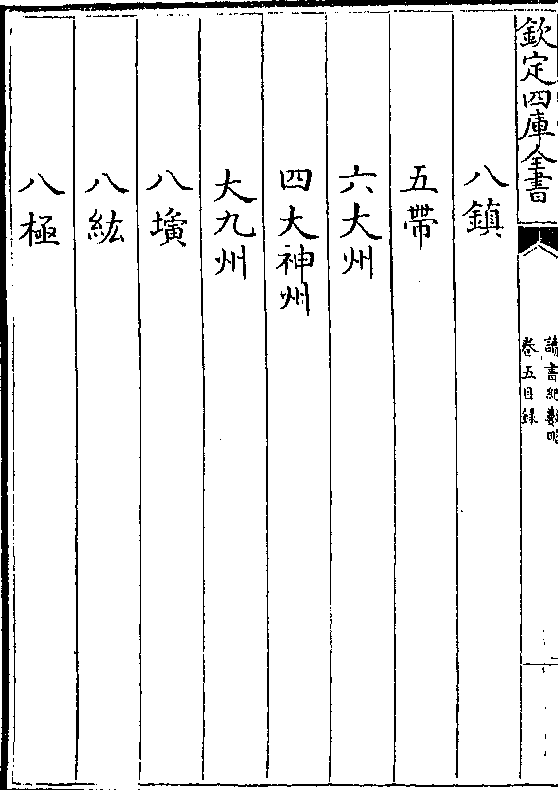 欽定四庫全書
讀書紀數略
卷五目錄
八鎮
五帶
六大州
四大神州
大九州
八壙
八紘
八極